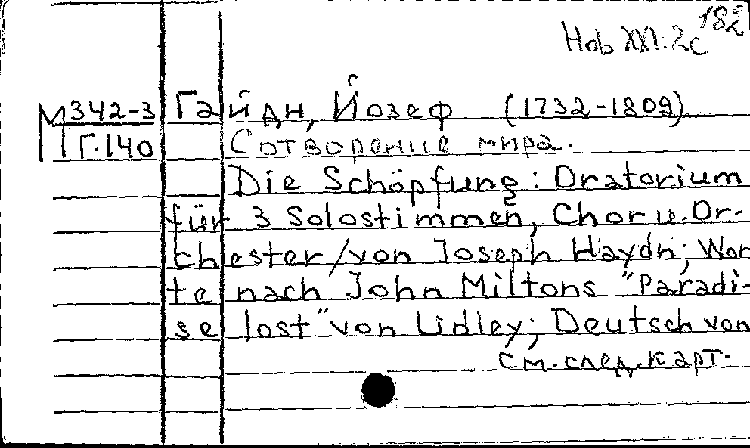 182
Hob XXI:2c
М 342-3 Гайдн, Йозеф (1732-1809)
Г.140 Сотворение мира.
Die Schöpfung: Oratorium
für 3 Solostimmen, Chor u. Or-
chester / von Joseph Haydn; Wor
te nach John Miltons "Paradi-
se lost" von Lidley; Deutsch von
см. след. карт.